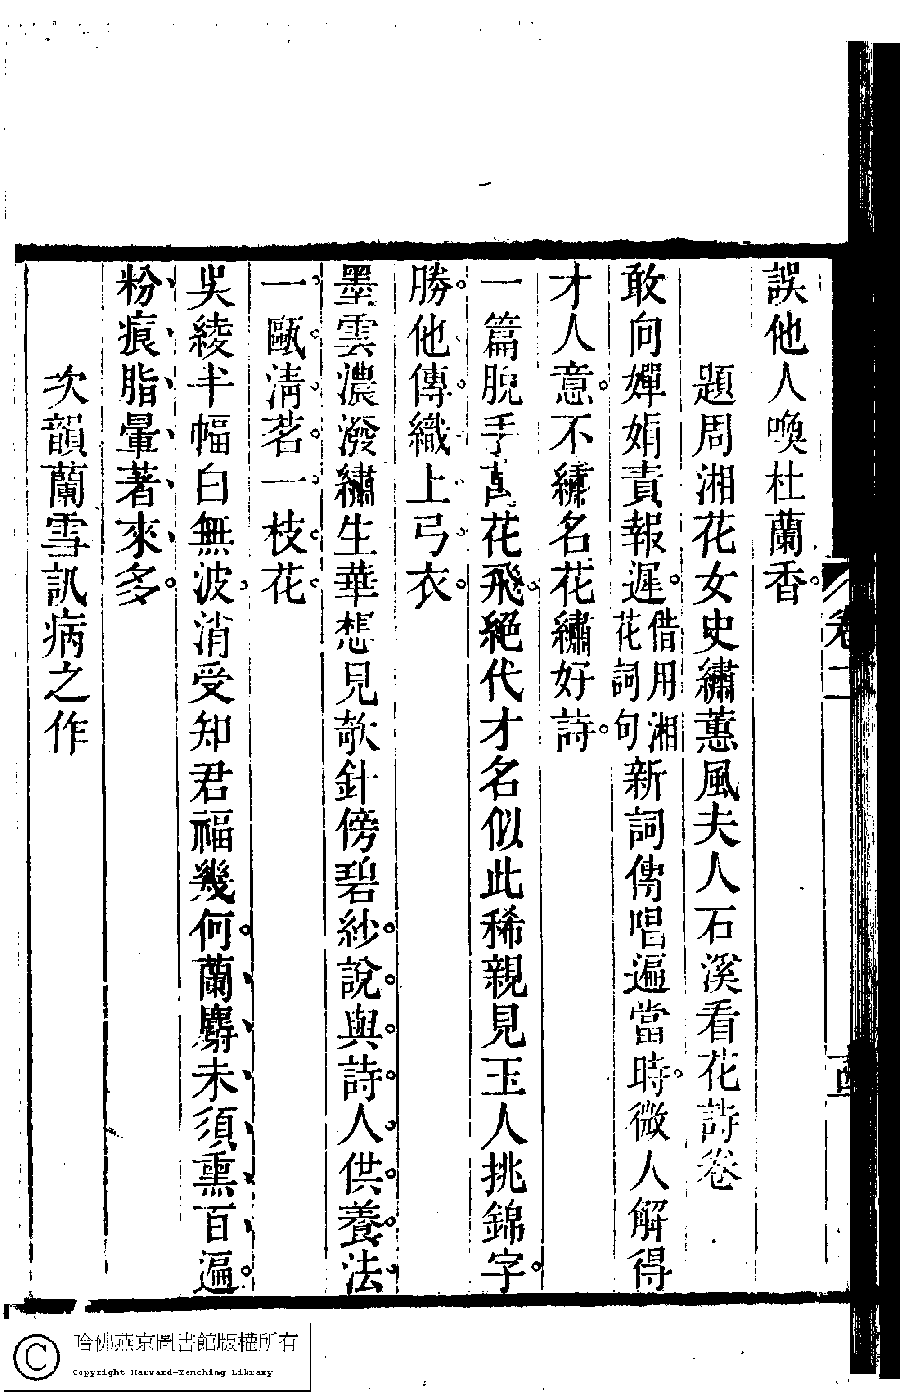 誤他人喚杜蘭香。
題周湘花女史繡蕙風夫人石溪看花詩卷
敢向嬋娟責報遲。借用湘花詞句新詞傳唱遍當時。微人解得
才人意。不繡名花繡好詩。
一篇脫手萬花飛。絕代才名似此稀。親見玉人挑錦字。
勝他傳織上弓衣。
墨雲濃潑繡生華。想見欹針傍碧紗。說與詩人供養法。
一甌淸茗一枝花。
吳綾半幅白無波。消受知君福幾何。蘭麝未須熏百遍。
粉痕脂暈著來多。
次韻蘭雪訊病之作
卷二
哈佛燕京圖書館版權所有
Copyright Harvard-Yenching Library